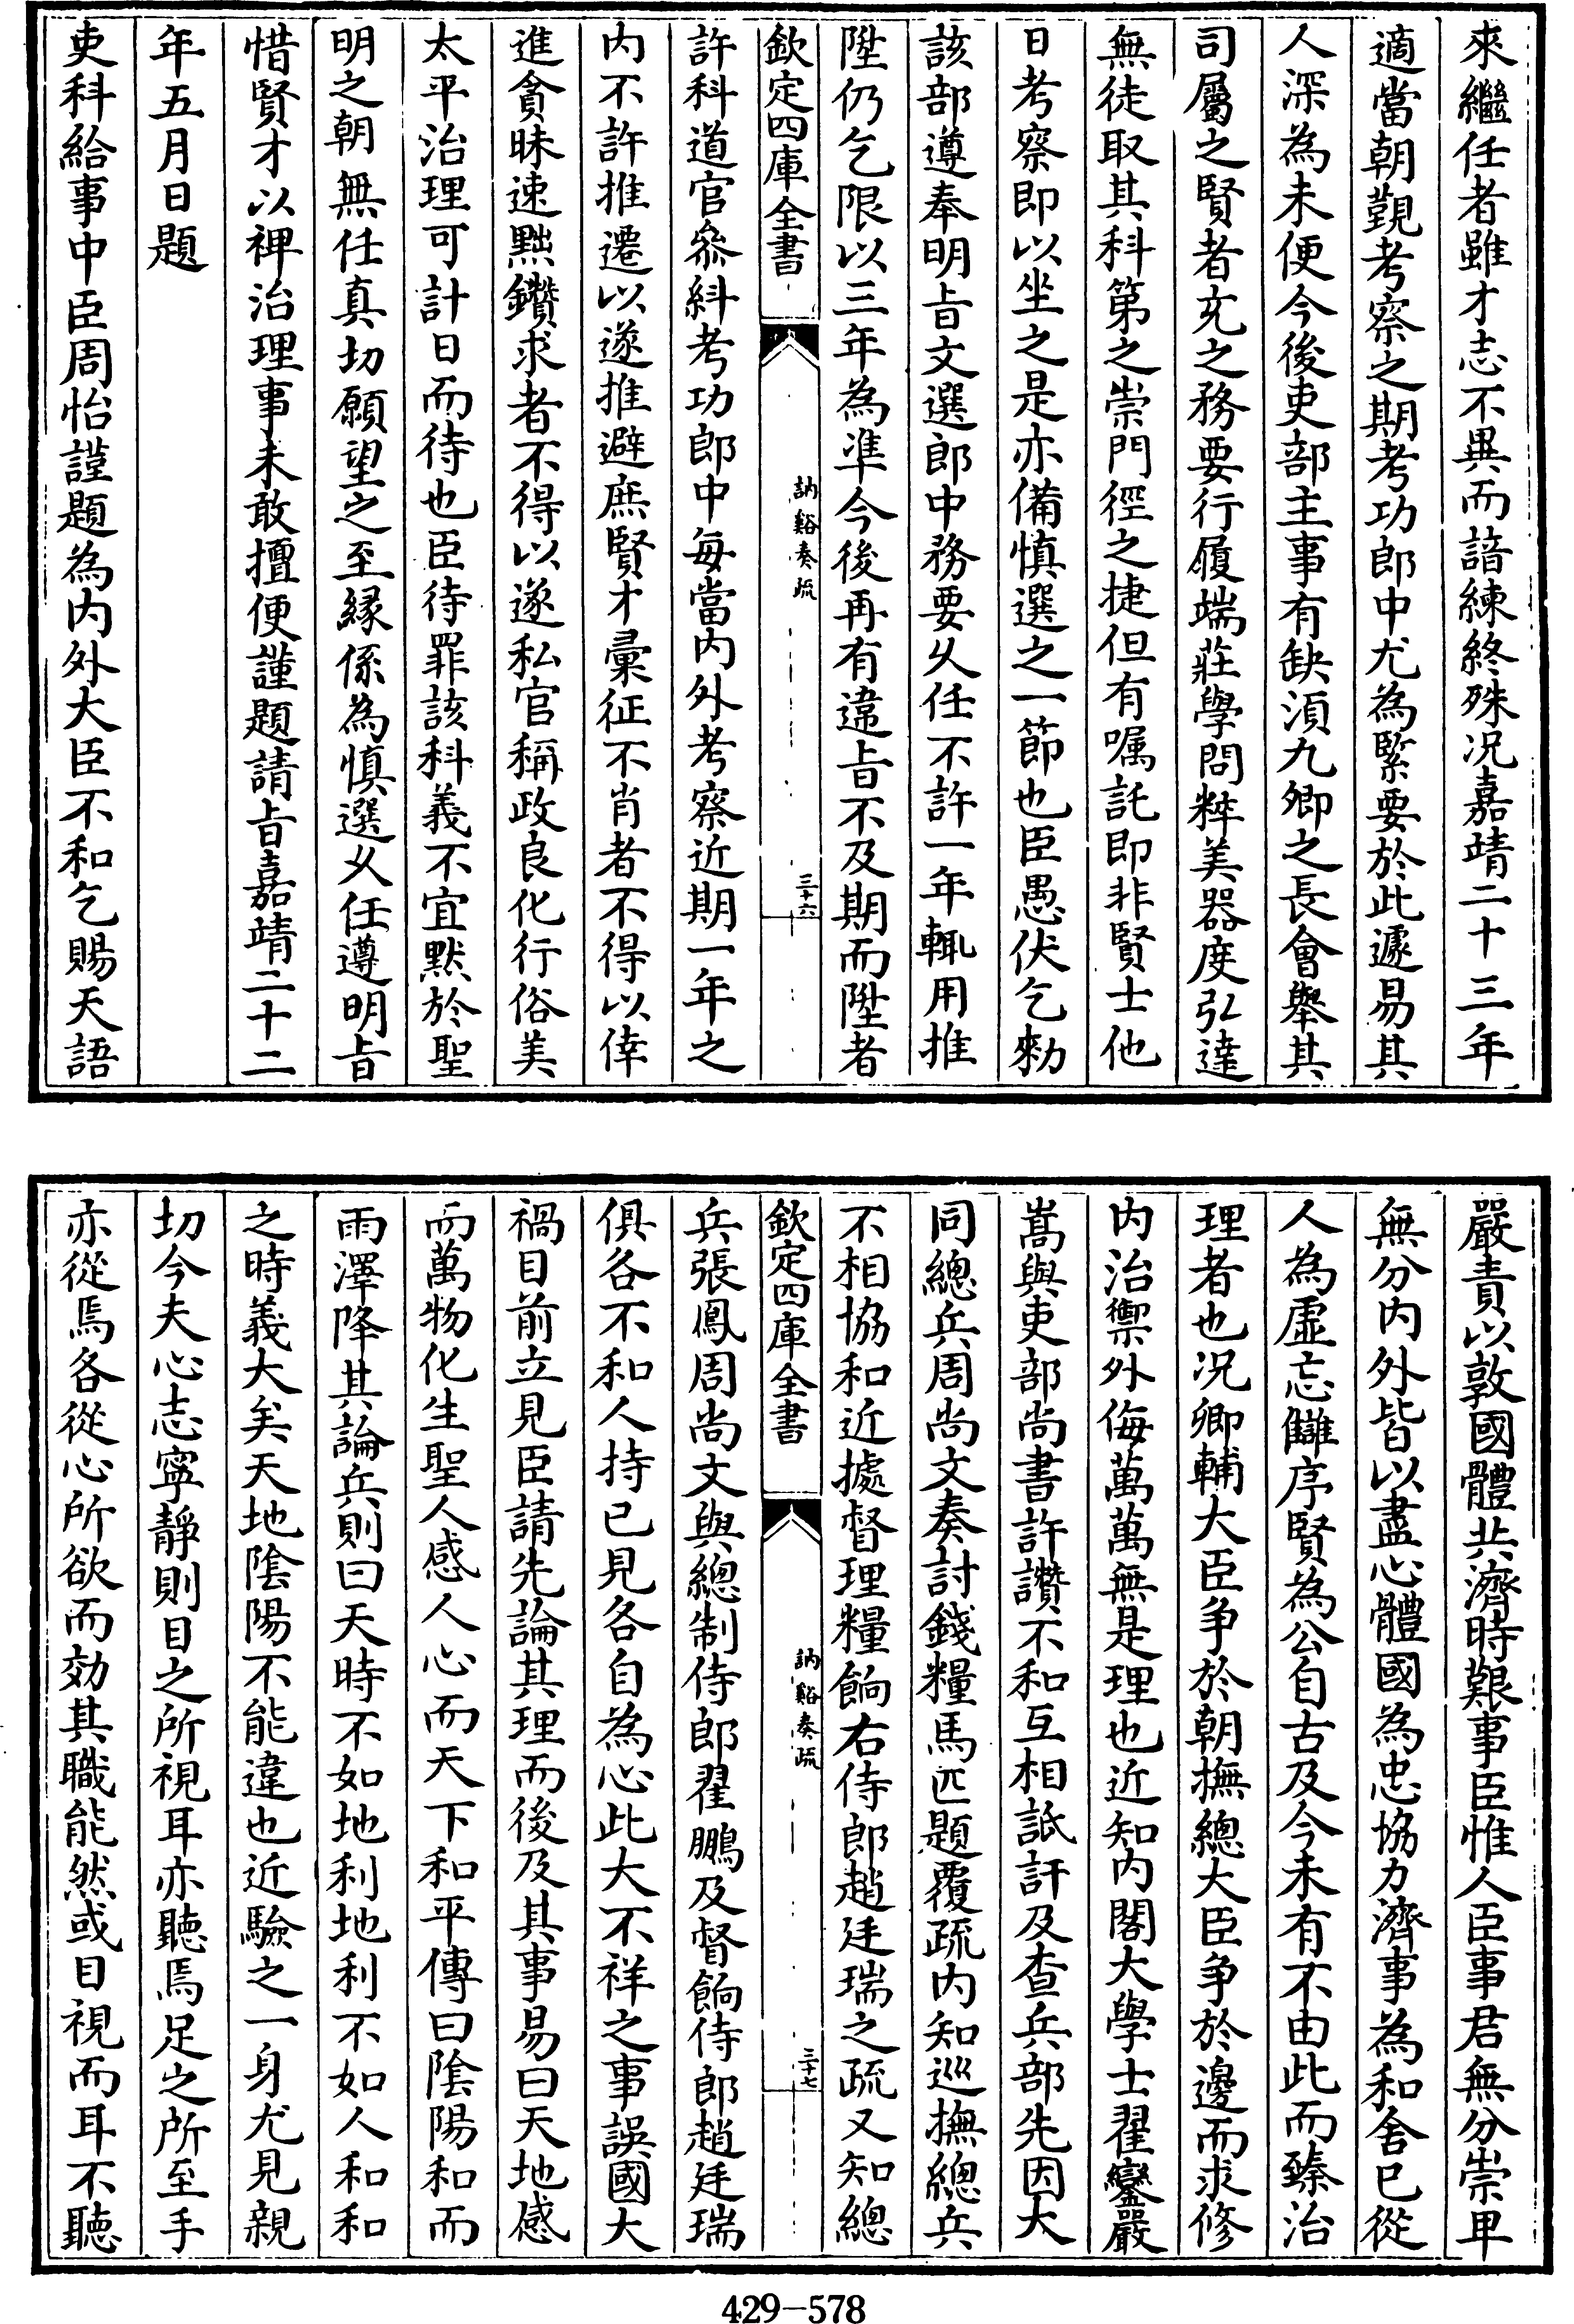 來繼任者雖才志不異而諳練終殊况嘉靖二十三年
適當朝覲考察之期考功郎中尤為緊要於此遽易其
人深為未便今後吏部主事有缺湏九卿之長會舉其
司屬之賢者充之務要行履端莊學問粹美器度弘達
無徒取其科第之崇門徑之捷但有囑託即非賢士他
日考察即以坐之是亦備慎選之一節也臣愚伏乞勑
該部遵奉明旨文選郎中務要久任不許一年輒用推
陞仍乞限以三年為凖今後再有違旨不及期而陞者
欽定四庫全書
訥谿奏疏
三十六
許科道官叅糾考功郎中每當内外考察近期一年之
内不許推遷以遂推避庶賢才彙征不肖者不得以倖
進貪昧速黜鑽求者不得以遂私官稱政良化行俗美
太平治理可計日而待也臣待罪該科義不宜默於聖
明之朝無任真切願望之至緣係為慎選乆任遵明旨
惜賢才以裨治理事未敢擅便謹題請旨嘉靖二十二
年五月日題
吏科給事中臣周怡謹題為内外大臣不和乞賜天語
嚴責以敦國體共濟時艱事臣惟人臣事君無分崇卑
無分内外皆以盡心體國為忠協力濟事為和舍已從
人為虛忘讎序賢為公自古及今未有不由此而臻治
理者也况卿輔大臣争於朝撫總大臣争於邊而求修
内治禦外侮萬萬無是理也近知内閣大學士翟鑾嚴
嵩與吏部尚書許讚不和互相詆訐及查兵部先因大
同總兵周尚文奏討錢糧馬匹題覆疏内知巡撫總兵
不相協和近據督理糧餉右侍郎趙廷瑞之疏又知總
欽定四庫全書
訥谿奏疏
三十七
兵張鳳周尚文與總制侍郎翟鵬及督餉侍郎趙廷瑞
俱各不和人持已見各自為心此大不祥之事誤國大
禍目前立見臣請先論其理而後及其事易曰天地感
而萬物化生聖人感人心而天下和平傳曰陰陽和而
雨澤降其論兵則曰天時不如地利地利不如人和和
之時義大矣天地陰陽不能違也近驗之一身尤見親
切今夫心志寧靜則目之所視耳亦聽焉足之所至手
亦從焉各從心所欲而効其職能然或目視而耳不聽
429-578